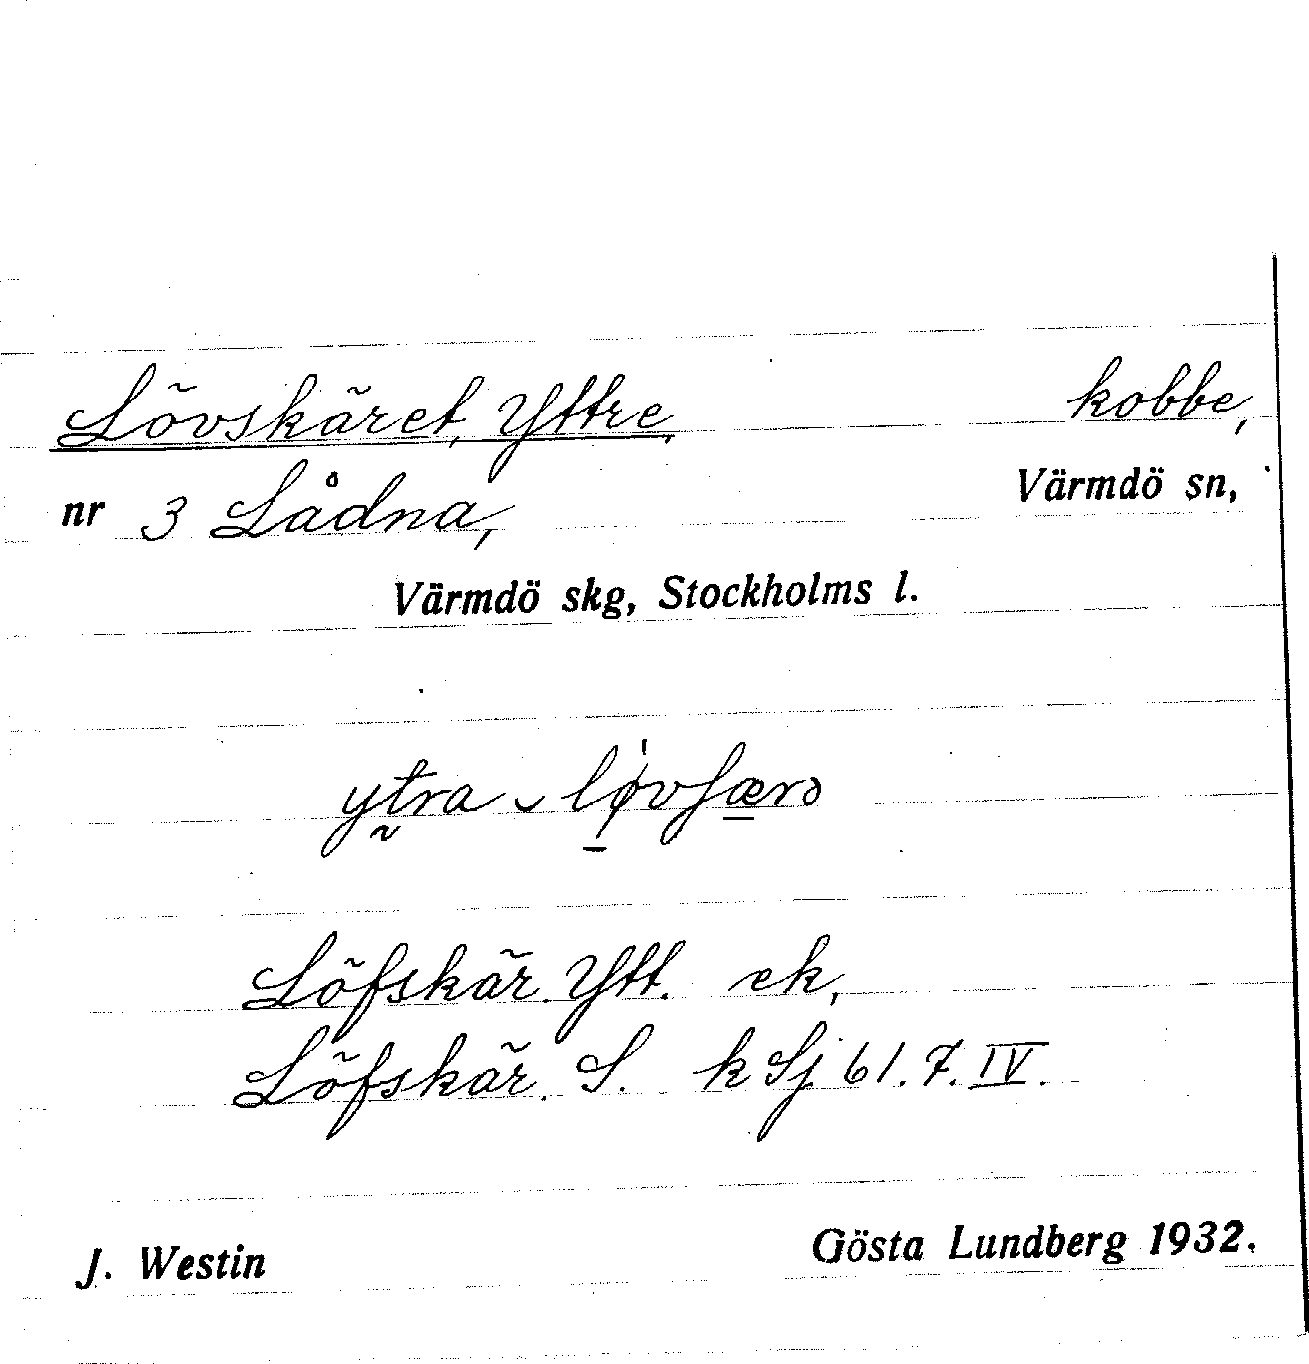 Lövskäret, Yttre, kobbe,
nr 3 Lådna, Värmdö sn,
Värmdö skg, Stockholms l.
ytra ⌣ lø̍vʃærə
Löfskär. Ytt. ek,
Löfskär. S. k Sj 61. 7. IV.
J. Westin Gösta Lundberg 1932.